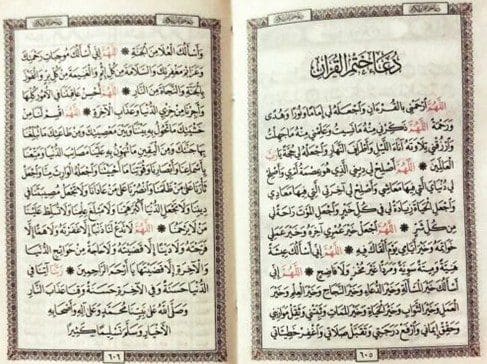 دُعَاءُ خَتْمِ القُرْآنِ
اللَّهُمَّ ارْحَمْنِي بِالقُرْءَانِ وَاجْعَلْهُ لِي إِمَامًا وَنُورًا وَهُدًى
وَرَحْمَةً ۞ اللَّهُمَّ ذَكِّرْنِي مِنْهُ مَا نَسِيتُ وَعَلِّمْنِي مِنْهُ مَا جَهِلْتُ
وَارْزُقْنِي تِلَاوَتَهُ آنَاءَ اللَّيْلِ وَأَطْرَافَ النَّهَارِ وَاجْعَلْهُ لِي حُجَّةً يَا رَبَّ
العَالَمِينَ ۞ اللَّهُمَّ أَصْلِحْ لِي دِينِي الَّذِي هُوَ عِصْمَةُ أَمْرِي وَأَصْلِحْ
لِي دُنْيَايَ الَّتِي فِيهَا مَعَاشِي وَأَصْلِحْ لِي آخِرَتِي الَّتِي فِيهَا مَعَادِي
وَاجْعَلِ الحَيَاةَ زِيَادَةً لِي فِي كُلِّ خَيْرٍ وَاجْعَلِ المَوْتَ رَاحَةً لِي
مِنْ كُلِّ شَرٍّ ۞ اللَّهُمَّ اجْعَلْ خَيْرَ عُمْرِي آخِرَهُ وَخَيْرَ عَمَلِي
خَوَاتِمَهُ وَخَيْرَ أَيَّامِي يَوْمَ أَلْقَاكَ فِيهِ ۞ اللَّهُمَّ إِنِّي أَسْأَلُكَ عِيشَةً
هَنِيَّةً وَمِيتَةً سَوِيَّةً وَمَرَدًّا غَيْرَ مُخْزٍ وَلَا فَاضِحٍ ۞ اللَّهُمَّ إِنِّي
أَسْأَلُكَ خَيْرَ المَسْأَلَةِ وَخَيْرَ الدُّعَاءِ وَخَيْرَ النَّجَاحِ وَخَيْرَ العِلْمِ وَخَيْرَ
العَمَلِ وَخَيْرَ الثَّوَابِ وَخَيْرَ الحَيَاةِ وَخَيْرَ المَمَاتِ وَثَبِّتْنِي وَثَقِّلْ مَوَازِينِي
وَحَقِّقْ إِيمَانِي وَارْفَعْ دَرَجَتِي وَتَقَبَّلْ صَلَاتِي وَاغْفِرْ خَطِيئَاتِي
٦٠٥
وَأَسْأَلُكَ العُلَا مِنَ الجَنَّةِ ۞ اللَّهُمَّ إِنِّي أَسْأَلُكَ مُوجِبَاتِ رَحْمَتِكَ
وَعَزَائِمَ مَغْفِرَتِكَ وَالسَّلَامَةَ مِنْ كُلِّ إِثْمٍ وَالغَنِيمَةَ مِنْ كُلِّ بِرٍّ وَالفَوْزَ
بِالجَنَّةِ وَالنَّجَاةَ مِنَ النَّارِ ۞ اللَّهُمَّ أَحْسِنْ عَاقِبَتَنَا فِي الأُمُورِ كُلِّهَا
وَأَجِرْنَا مِنْ خِزْيِ الدُّنْيَا وَعَذَابِ الآخِرَةِ ۞ اللَّهُمَّ اقْسِمْ لَنَا مِنْ
خَشْيَتِكَ مَا تَحُولُ بِهِ بَيْنَنَا وَبَيْنَ مَعْصِيَتِكَ وَمِنْ طَاعَتِكَ مَا تُبَلِّغُنَا
بِهَا جَنَّتَكَ وَمِنَ اليَقِينِ مَا تُهَوِّنُ بِهِ عَلَيْنَا مَصَائِبَ الدُّنْيَا وَمَتِّعْنَا
بِأَسْمَاعِنَا وَأَبْصَارِنَا وَقُوَّتِنَا مَا أَحْيَيْتَنَا وَاجْعَلْهُ الوَارِثَ مِنَّا وَاجْعَلْ
ثَأْرَنَا عَلَى مَنْ ظَلَمَنَا وَانْصُرْنَا عَلَى مَنْ عَادَانَا وَلَا تَجْعَلْ مُصِيبَتَنَا فِي
دِينِنَا وَلَا تَجْعَلِ الدُّنْيَا أَكْبَرَ هَمِّنَا وَلَا مَبْلَغَ عِلْمِنَا وَلَا تُسَلِّطْ عَلَيْنَا
مَنْ لَا يَرْحَمُنَا ۞ اللَّهُمَّ لَا تَدَعْ لَنَا ذَنْبًا إِلَّا غَفَرْتَهُ وَلَا هَمًّا إِلَّا
فَرَّجْتَهُ وَلَا دَيْنًا إِلَّا قَضَيْتَهُ وَلَا حَاجَةً مِنْ حَوَائِجِ الدُّنْيَا
وَالآخِرَةِ إِلَّا قَضَيْتَهَا يَا أَرْحَمَ الرَّاحِمِينَ ۞ رَبَّنَا آتِنَا فِي
الدُّنْيَا حَسَنَةً وَفِي الآخِرَةِ حَسَنَةً وَقِنَا عَذَابَ النَّارِ
وَصَلَّى اللهُ عَلَى نَبِيِّنَا مُحَمَّدٍ وَعَلَى آلِهِ وَأَصْحَابِهِ
الأَخْيَارِ وَسَلَّمَ تَسْلِيمًا كَثِيرًا
٦٠٦